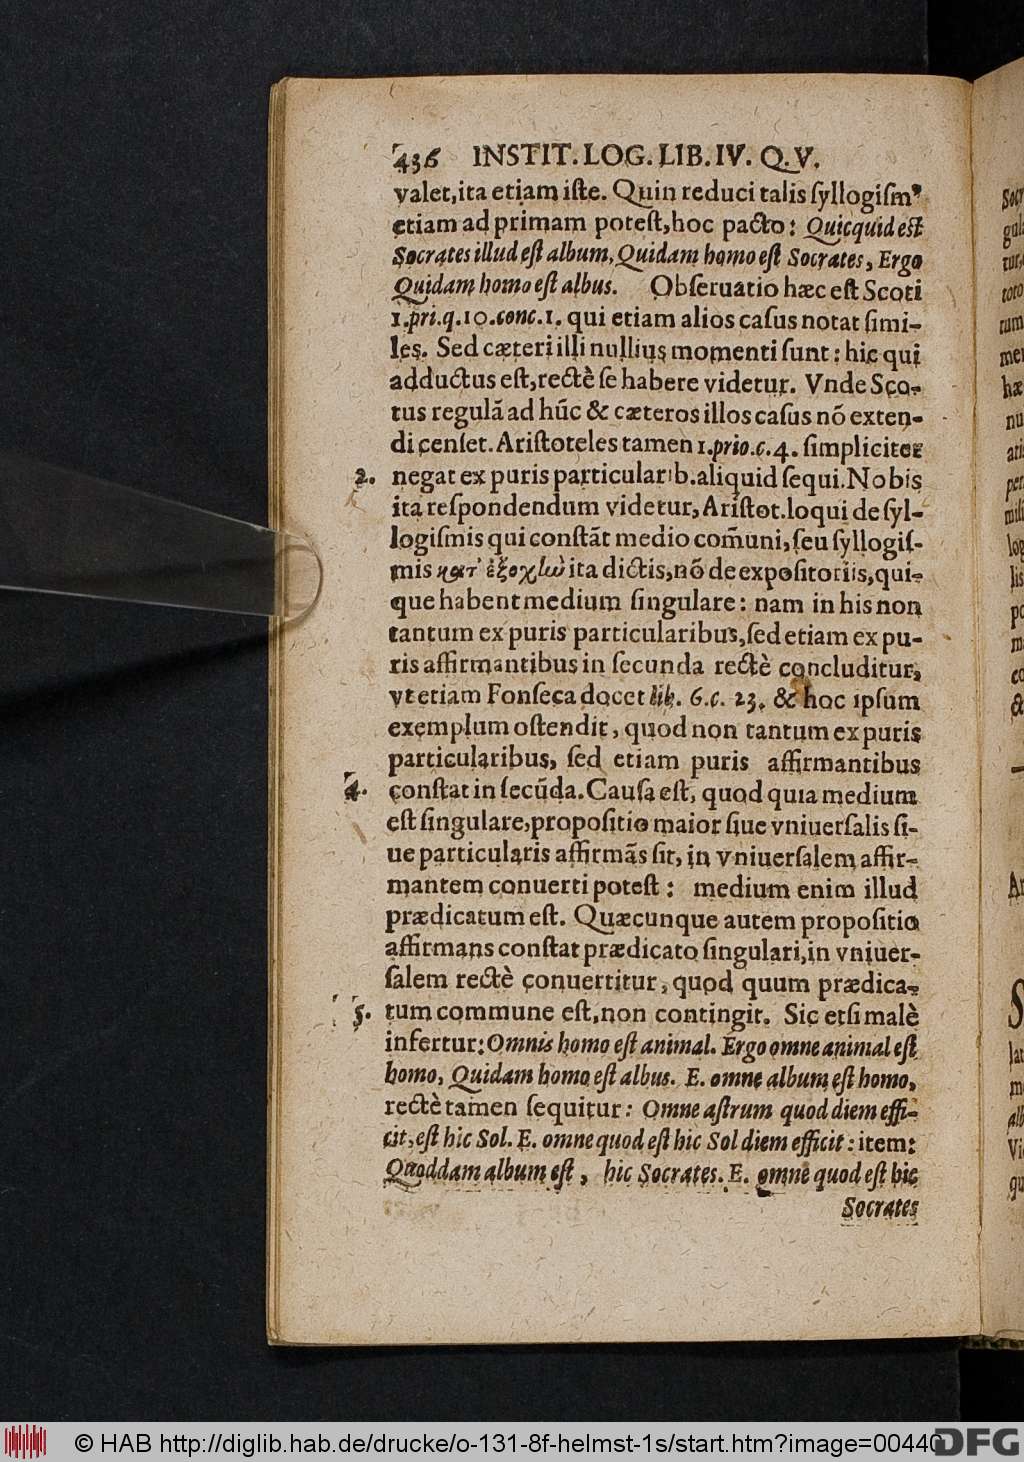 436 INSTIT. LOG. LIB. IV. Q. V.
valet, ita etiam iſte. Quin reduci talis ſyllogiſmꝰ
etiam ad primam poteſt, hoc pacto: Quicquid eſt
Socrates illud eſt album, Quidam homo eſt Socrates, Ergo
Quidam homo eſt albus. Obſeruatio hæc eſt Scoti
1. pri. q. 10. conc. 1. qui etiam alios caſus notat ſimi-
les. Sed cæteri illi nullius momenti ſunt: hic qui
adductus eſt, rectè ſe habere videtur. Vnde Sco-
tus regulã ad hũc & cæteros illos caſus nõ exten-
di cenſet. Ariſtoteles tamen 1. prio. c. 4. ſimpliciter
2. negat ex puris particularib. aliquid ſequi. Nobis
ita reſpondendum videtur, Ariſtot. loqui de ſyl-
logiſmis qui conſtãt medio com̃uni, ſeu ſyllogiſ-
mis κατ' ἐξοχὴν ita dictis, nõ de expoſitoriis, qui-
que habent medium ſingulare: nam in his non
tantum ex puris particularibus, ſed etiam ex pu-
ris affirmantibus in ſecunda rectè concluditur,
vt etiam Fonſeca docet lib. 6. c. 23. & hoc ipſum
exemplum oſtendit, quod non tantum ex puris
particularibus, ſed etiam puris affirmantibus
4. conſtat in ſecũda. Cauſa eſt, quod quia medium
eſt ſingulare, propoſitio maior ſiue vniuerſalis ſi-
ue particularis affirmãs ſit, in vniuerſalem affir-
mantem conuerti poteſt: medium enim illud
prædicatum eſt. Quæcunque autem propoſitio
affirmans conſtat prædicato ſingulari, in vniuer-
ſalem rectè conuertitur, quod quum prædica-
5. tum commune eſt, non contingit. Sic etſi malè
infertur: Omnis homo eſt animal. Ergo omne animal eſt
homo, Quidam homo eſt albus. E. omne album eſt homo,
rectè tamen ſequitur: Omne aſtrum quod diem effi-
cit, eſt hic Sol. E. omne quod eſt hic Sol diem efficit: item:
Quoddam album eſt, hic Socrates. E. omne quod eſt hic
Socrates
© HAB http://diglib.hab.de/drucke/o-131-8f-helmst-1s/start.htm?image=00440
DFG